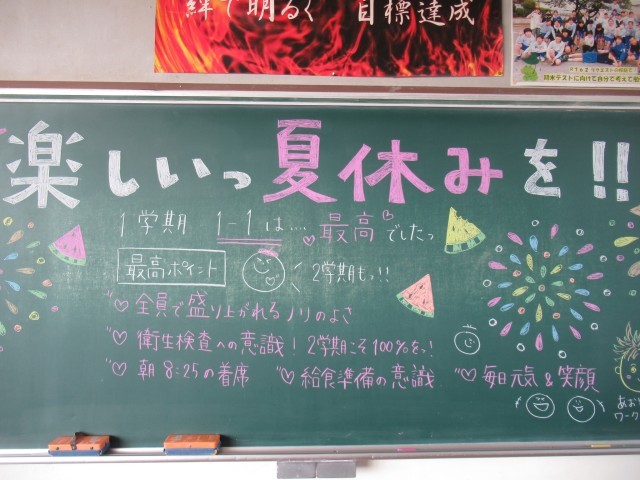 絆で明るく 目標達成
期末テストに向けて自分で考えて
楽しいっ夏休みを!!
1学期 1-1は.... 最高でしたっ
最高ポイント 2学期もっ!!
全員で盛り上がれるノリのよさ
衛生検査への意識! 2学期こそ100%をっ!
朝8:25の着席 給食準備の意識 毎日元気&笑顔
ワーク